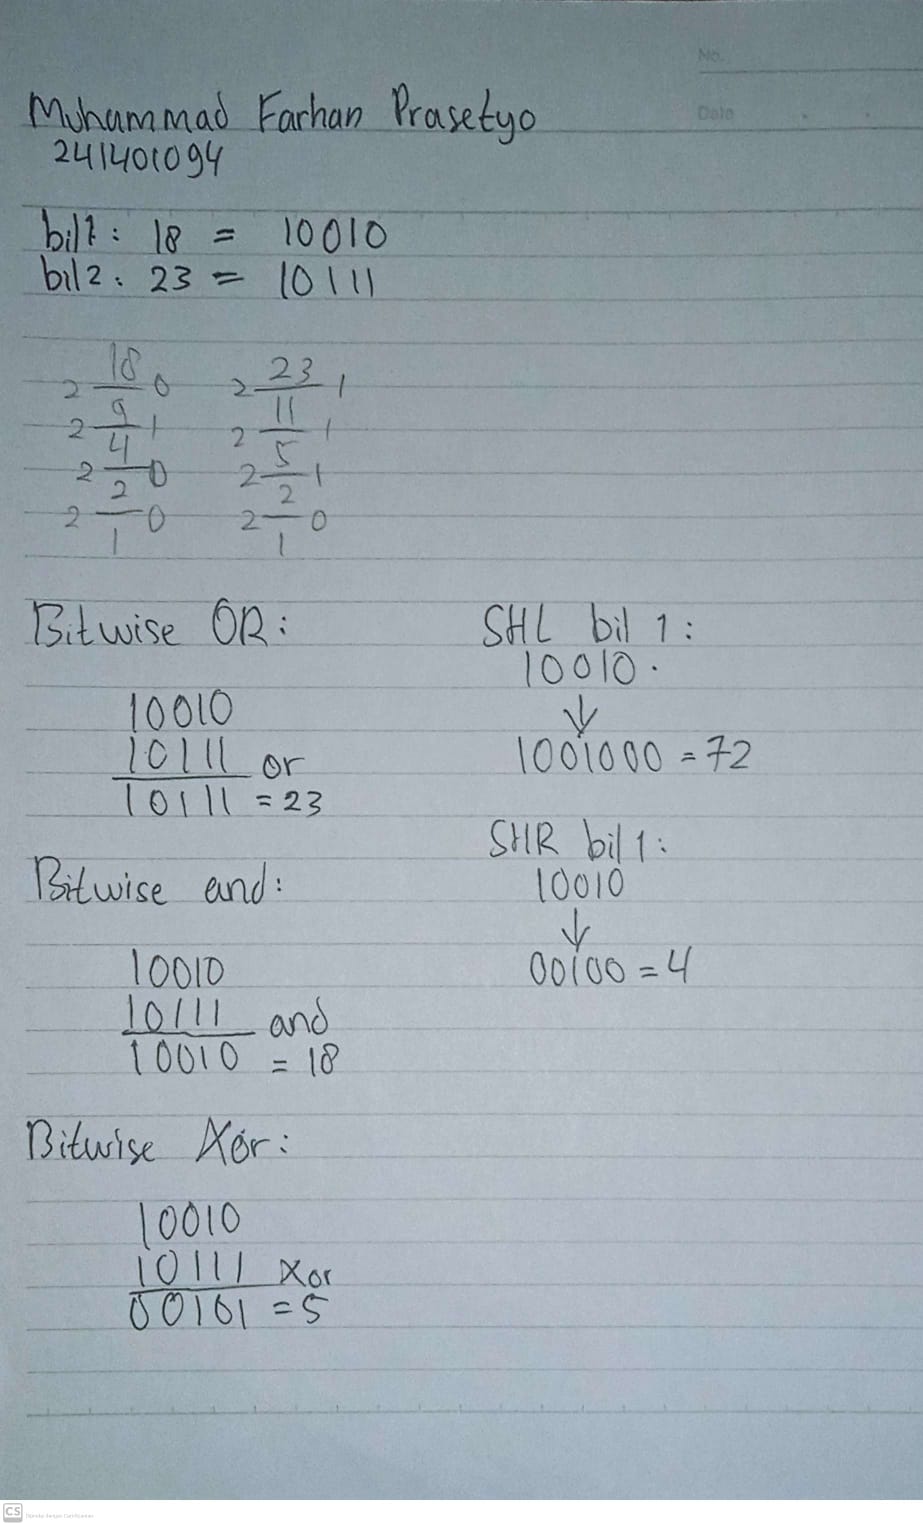 No.
Date
Muhammad Farhan Prasetyo
241401094
bil1: 18 = 10010
bil2: 23 = 10111
18
2 0
9
2 1
4
2 0
2
2 0
1
23
2 1
11
2 1
5
2 1
2
2 0
1
Bitwise OR:
10010
10111 or
10111 = 23
Bitwise and:
10010
10111 and
10010 = 18
Bitwise Xor:
10010
10111 Xor
00101 = 5
SHL bil 1:
10010.
↓
1001000 = 72
SHR bil 1:
10010
↓
00100 = 4
CS